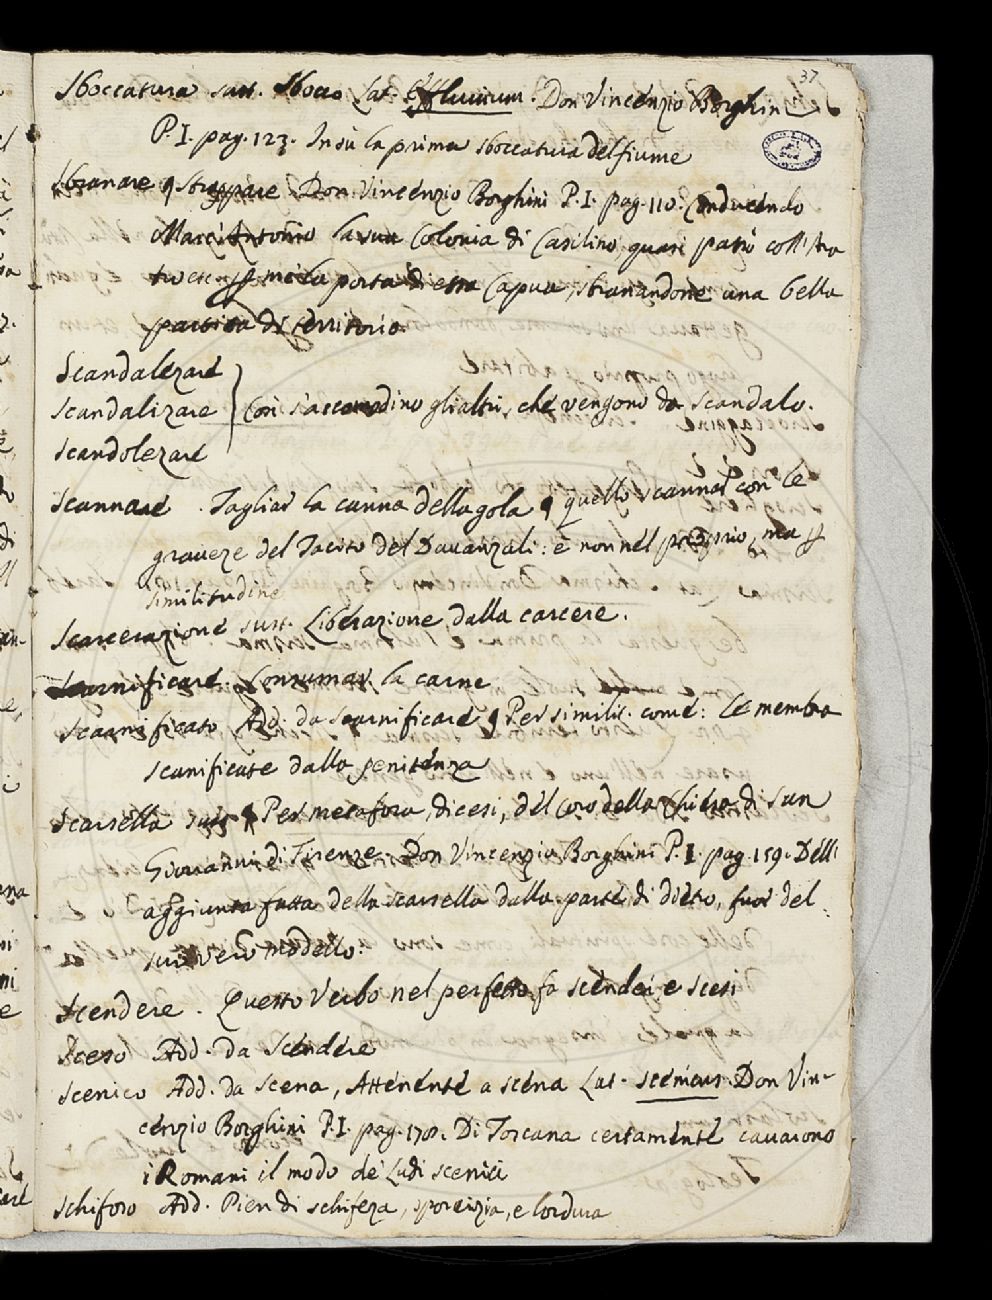 37
Sboccatura sust. Sbocco Lat. Effluvium. Don Vincenzio Borghin
P. I. pag. 123. In sù la prima sboccatura del fiume
Sbranare ¶ Strappare Don Vincenzio Borghini P. I. pag. 110. Conducendo
Marc'Antonio la sua Colonia di Casilino quasi
porta di essa Capua, sbranandone una bella
partita di territorio.
Scandalezare
Scandalizare } Così s'accomodino gli altri, che vengono da scandalo.
Scandolezare
Scannare . Tagliar la canna della gola ¶ quello scannar con le
graveze del Tacito del Davanzali: è non nel proprio, ma p
similitudine
Scarcerazione sust. Liberazione dalla carcere.
Scarnificare. Consumar la carne
Scarnificato Add. da Scarnificare ¶ Per similit. come: Le membra
scanificate dalla penitenza
Scarsella sust. ¶ Per metafora, dicesi, del Coro della Chiesa di San
Giovanni di Firenze. Don Vincenzio Borghini P. I. pag. 159. Dell
aggiunta fatta della scarsella dalla parte di dietro, fuor del
suo vero modello.
Scendere . Questo Verbo nel perfetto fa scendei e scesi
Sceso Add. da Scendere
Scenico Add. da Scena, Attenente a scena Lat. scenicus. Don Vin-
cenzio Borghini P. I. pag. 170. Di Toscana certamente cavarono
i Romani il modo de' Ludi scenici
Schifoso Add. Pien di schifeza, sporcizia, e lordura